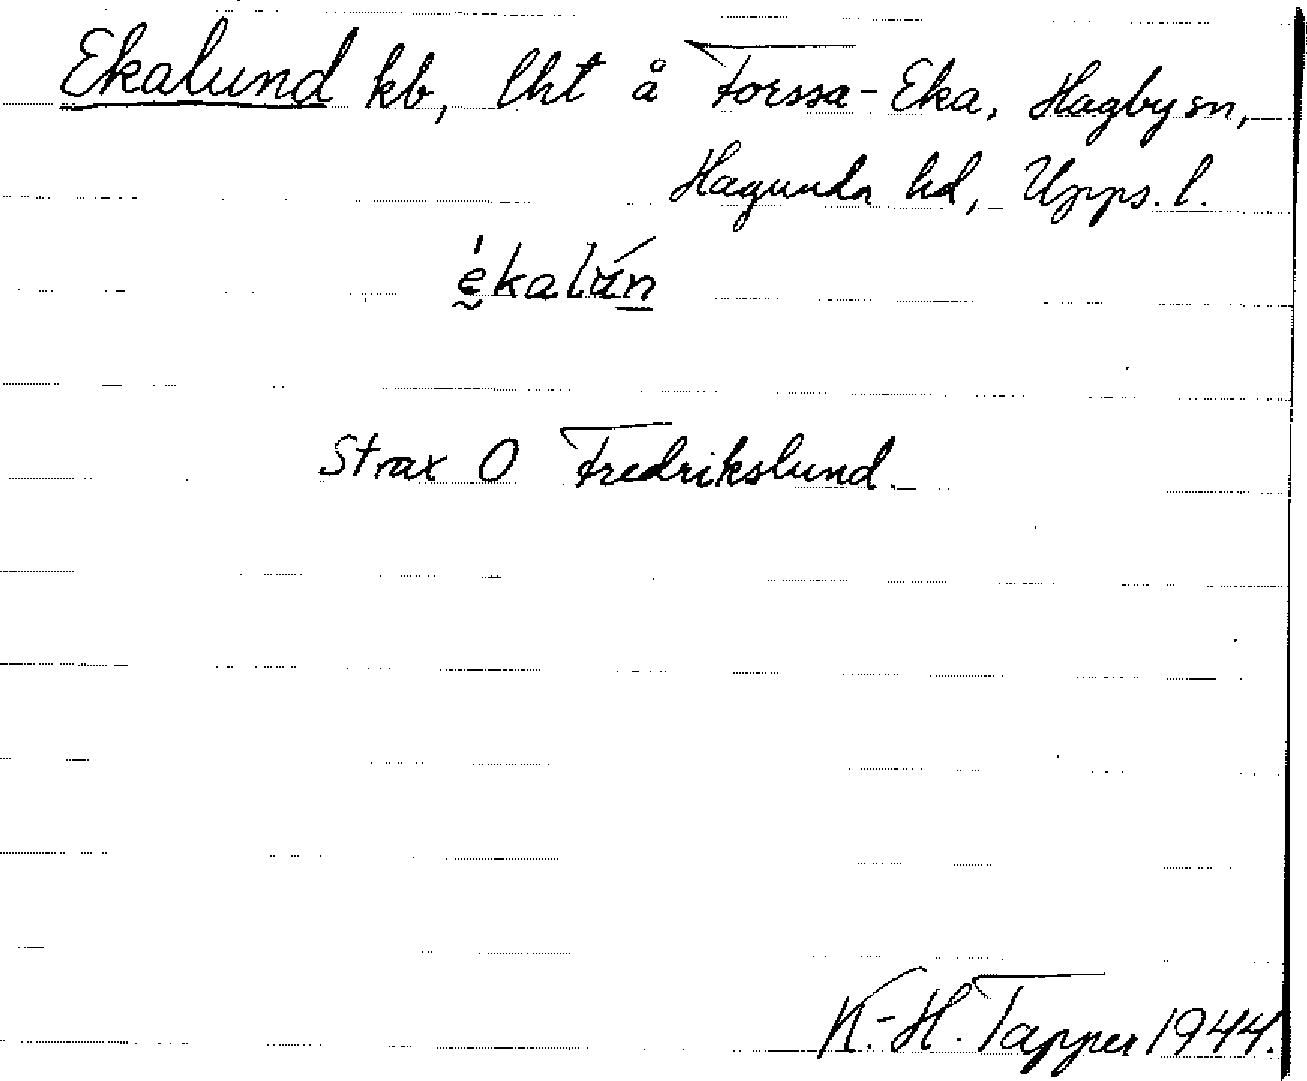 Ekalund kb, lht å Forssa-Eka, Hagby sn,
Hagunda hd, Upps. l.
ékalún
Strax O Fredrikslund
K.-H. Tapper 1944.